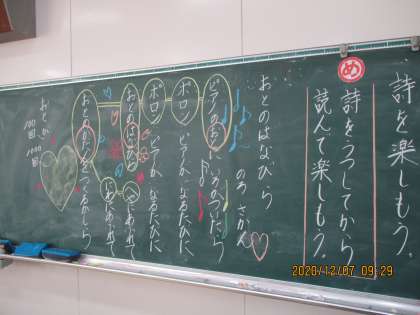 詩を楽しもう。
め
詩をうつしてから
読んで楽しもう。
おとのはなびら
のろ さかん
ピアノのおとに いろがついたら
ポロン ピアノが なるたびに
ポロン ピアノが なるたびに
おとのはなびら へやにあふれて
にわにあふれて
おとのかだんを つくるかしら
おとが
100回
1000回
2020/12/07 09:29